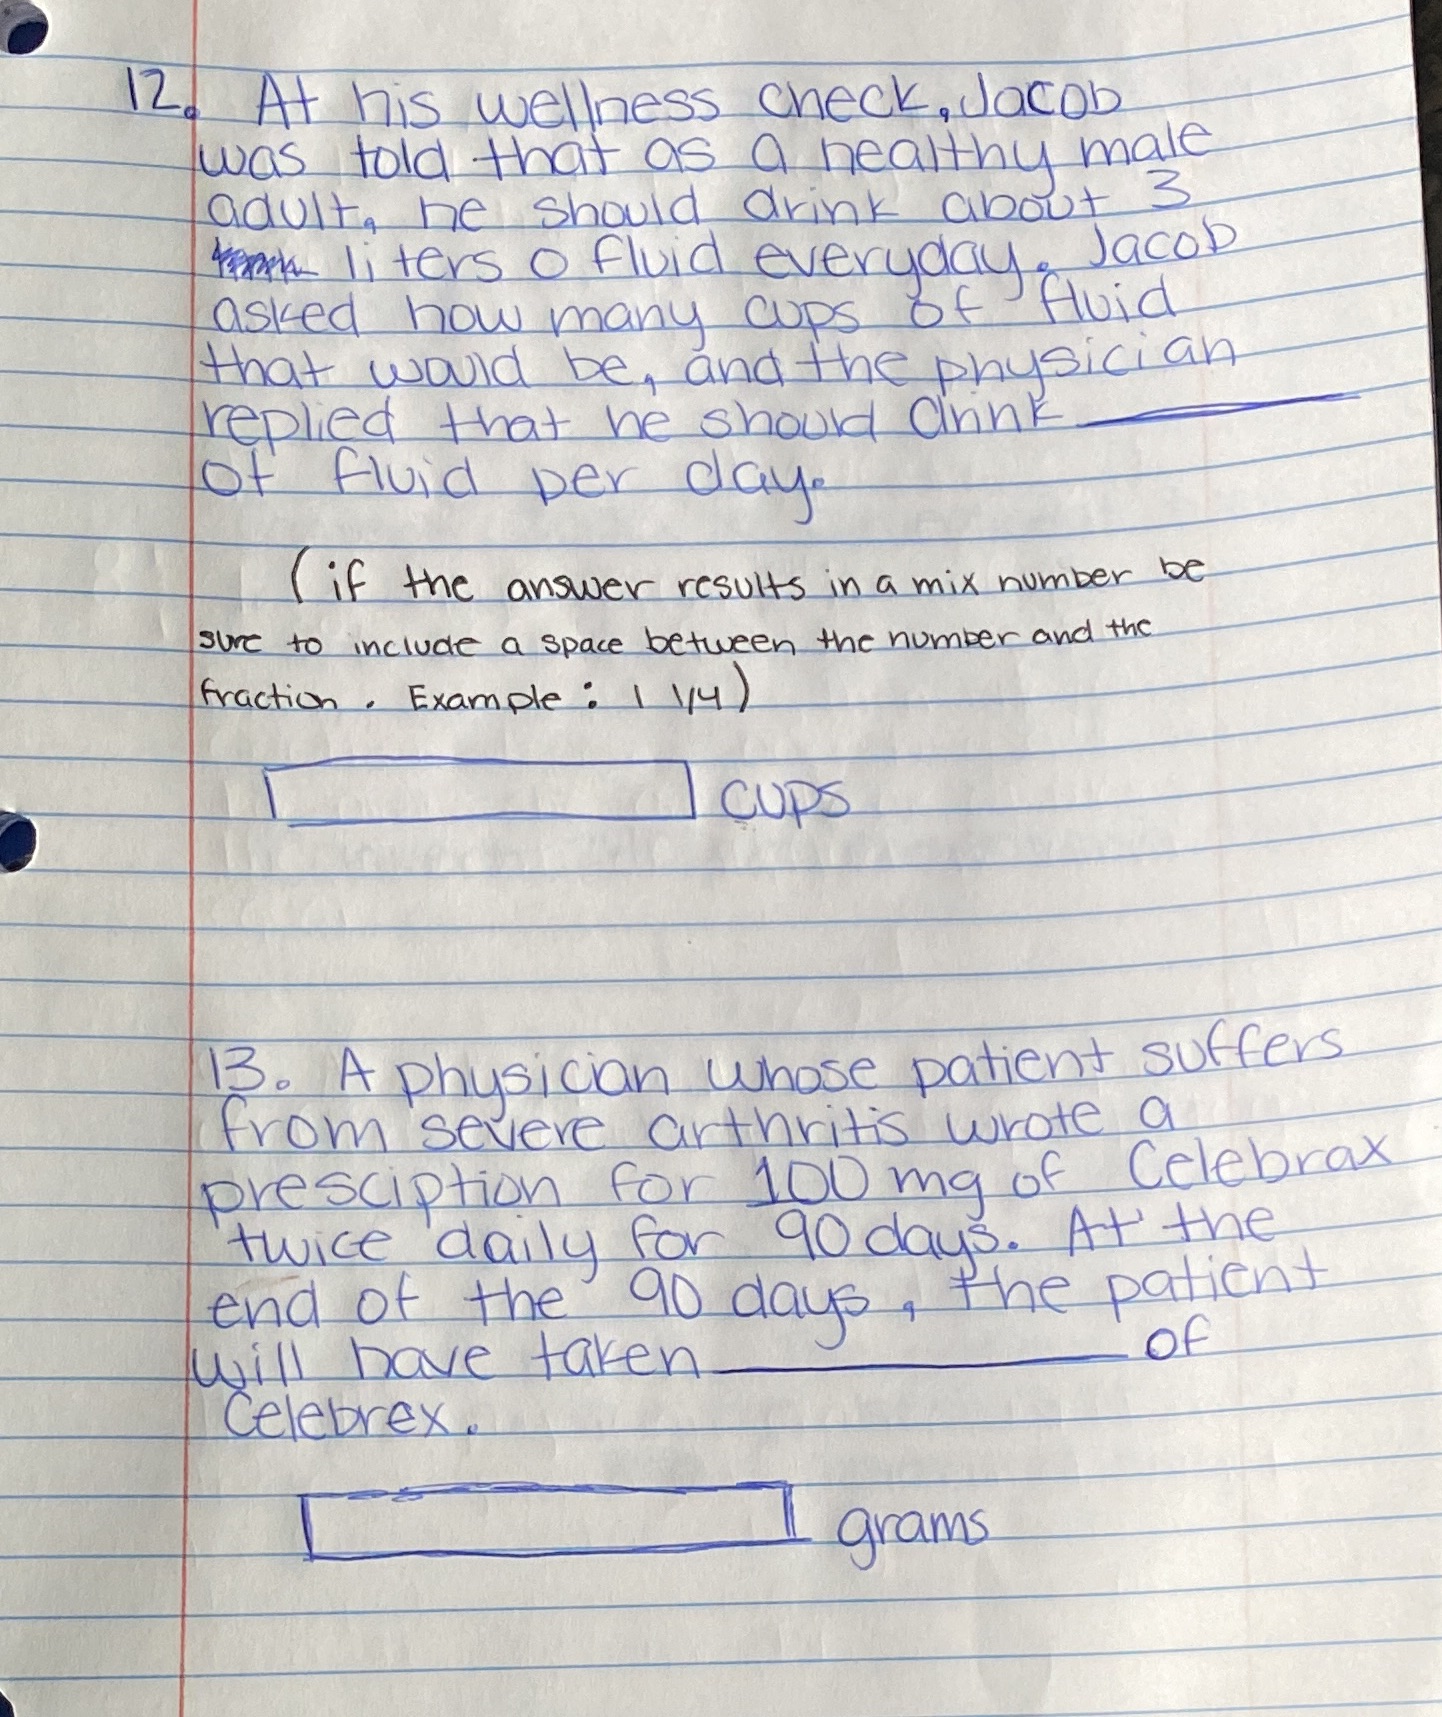 12. At his wellness check, Jacob
was told that as a healthy male
adult, he should drink about 3
liters o fluid everyday. Jacob
asked how many cups of fluid
that would be, and the physician
replied that he should drink
of fluid per day.
(if the answer results in a mix number be
sure to include a space between the number and the
fraction. Example: 1 1/4)
cups
13. A physician whose patient suffers
from severe arthritis wrote a
presciption for 100 mg of Celebrax
twice daily for 90 days. At the
end of the 90 days, the patient
will have taken of
Celebrex.
grams